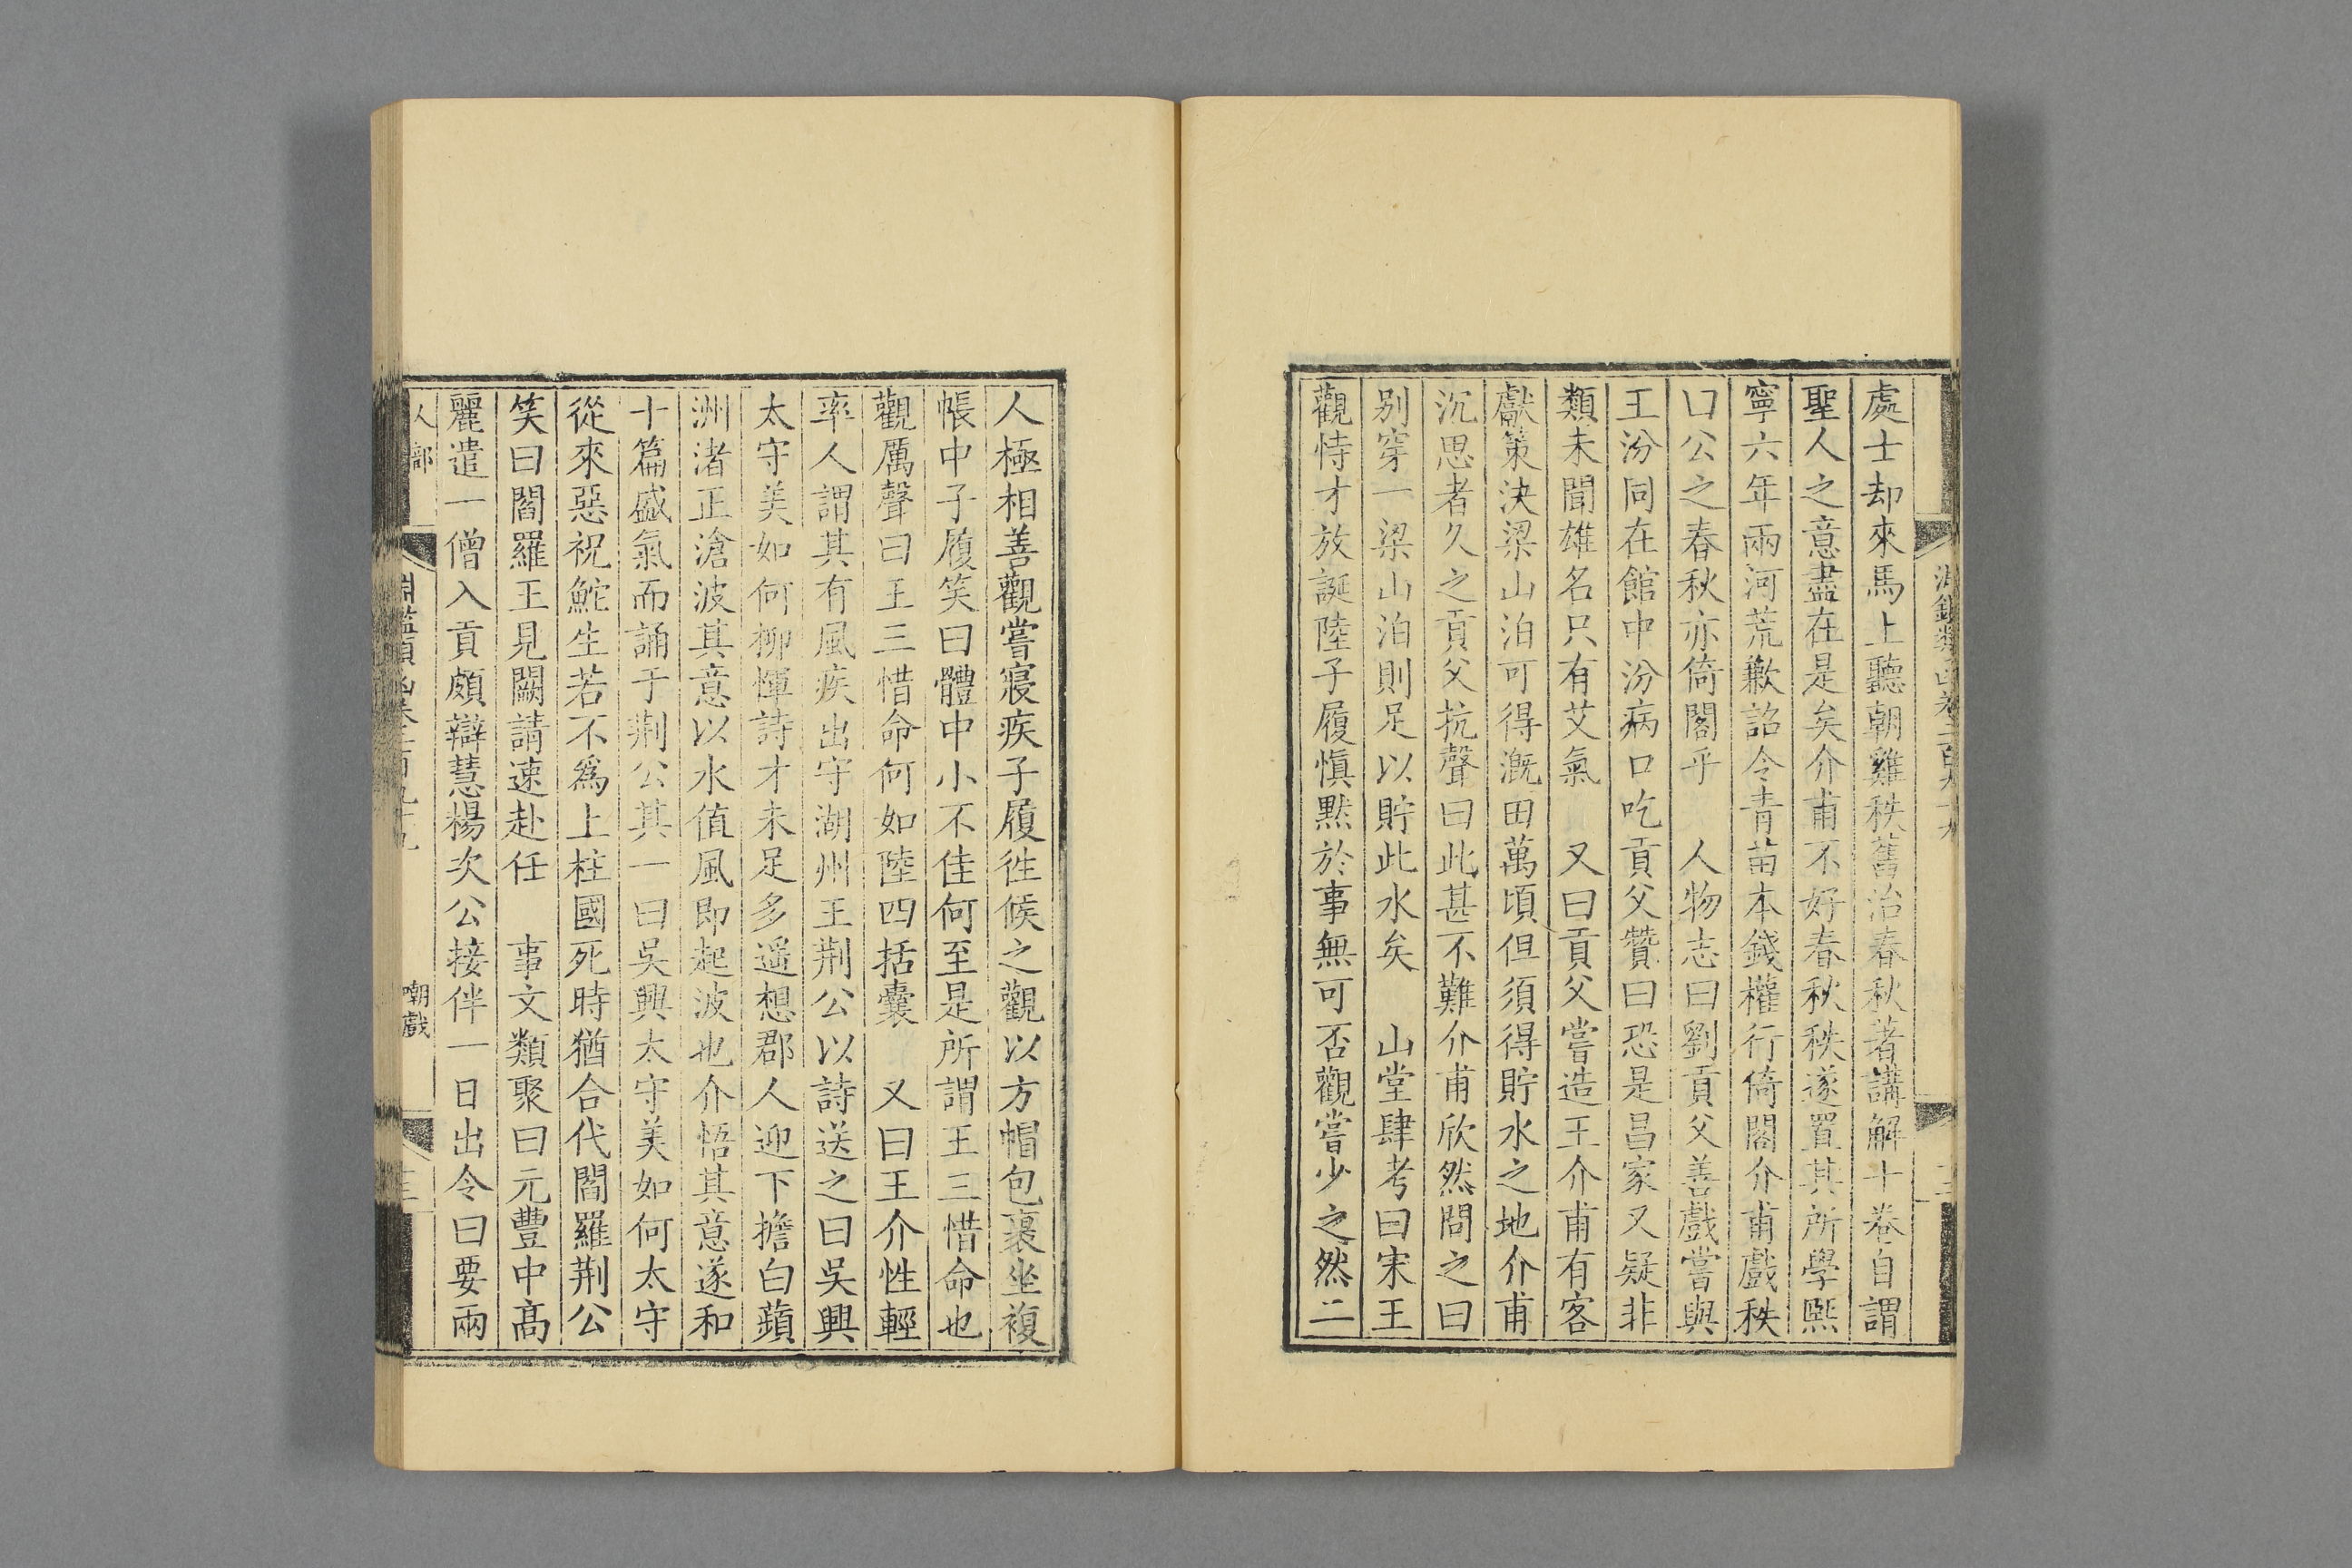 處士却來馬上聽朝雞秩舊治春秋著講解十卷自謂
聖人之意盡在是矣介甫不好春秋秩遂置其所學熙
寧六年兩河荒歉詔令青苗本錢權行倚閣介甫戲秩
曰公之春秋亦倚閣乎　人物志曰劉貢父善戲嘗與
王汾同在館中汾病口吃貢父贊曰恐是昌家又疑非
類未聞雄名只有艾氣　又曰貢父嘗造王介甫有客
獻策決梁山泊可得漑田萬頃但須得貯水之地介甫
沉思者久之貢父抗聲曰此甚不難介甫欣然問之曰
别穿一梁山泊則足以貯此水矣　山堂肆考曰宋王
觀恃才放誕陸子履愼黙於事無可否觀嘗少之然二
人極相善觀嘗寢疾子履徃候之觀以方帽包裹坐複
帳中子履笑曰體中小不佳何至是所謂王三惜命也
觀厲聲曰王三惜命何如陸四括囊　又曰王介性輕
率人謂其有風疾出守湖州王荆公以詩送之曰吳興
太守美如何柳惲詩才未足多遥想郡人迎下擔白蘋
洲渚正滄波其意以水值風即起波也介悟其意遂和
十篇盛氣而誦于荆公其一曰吳興太守美如何太守
從來惡祝鮀生若不爲上柱國死時猶合代閻羅荆公
笑曰閻羅王見闕請速赴任　事文類聚曰元豐中髙
麗遣一僧入貢頗辯慧楊次公接伴一日出令曰要兩
人部
淵鑑類函卷二百九十九
嘲戲